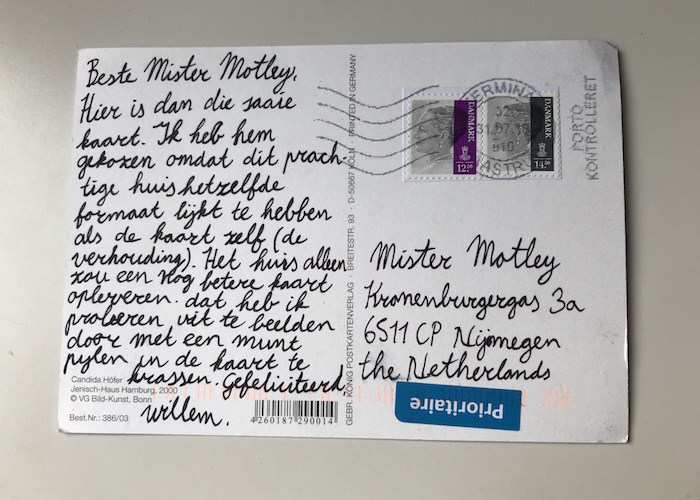 Beste Mister Motley,
Hier is dan die saaie
kaart. Ik heb hem
gekozen omdat dit prach-
tige huis hetzelfde
formaat lijkt te hebben
als de kaart zelf (de
verhouding). Het huis alleen
zou een nog betere kaart
opleveren. dat heb ik
proberen uit te beelden
door met een munt
pijlen in de kaart te
krassen. Gefeliciteerd,
willem.
Candida Höfer
Jenisch-Haus Hamburg, 2000
© VG Bild-Kunst, Bonn
Best.Nr.: 386/03
4 260187 290014
GEBR. KÖNIG POSTKARTENVERLAG · BREITESTR. 93 · D-50667 KÖLN · PRINTED IN GERMANY
DANMARK
12.00
DANMARK
14.00
PORTO
KONTROLLERET
Mister Motley
Kronenburgergas 3a
6511 CP Nijmegen
the Netherlands
Prioritaire